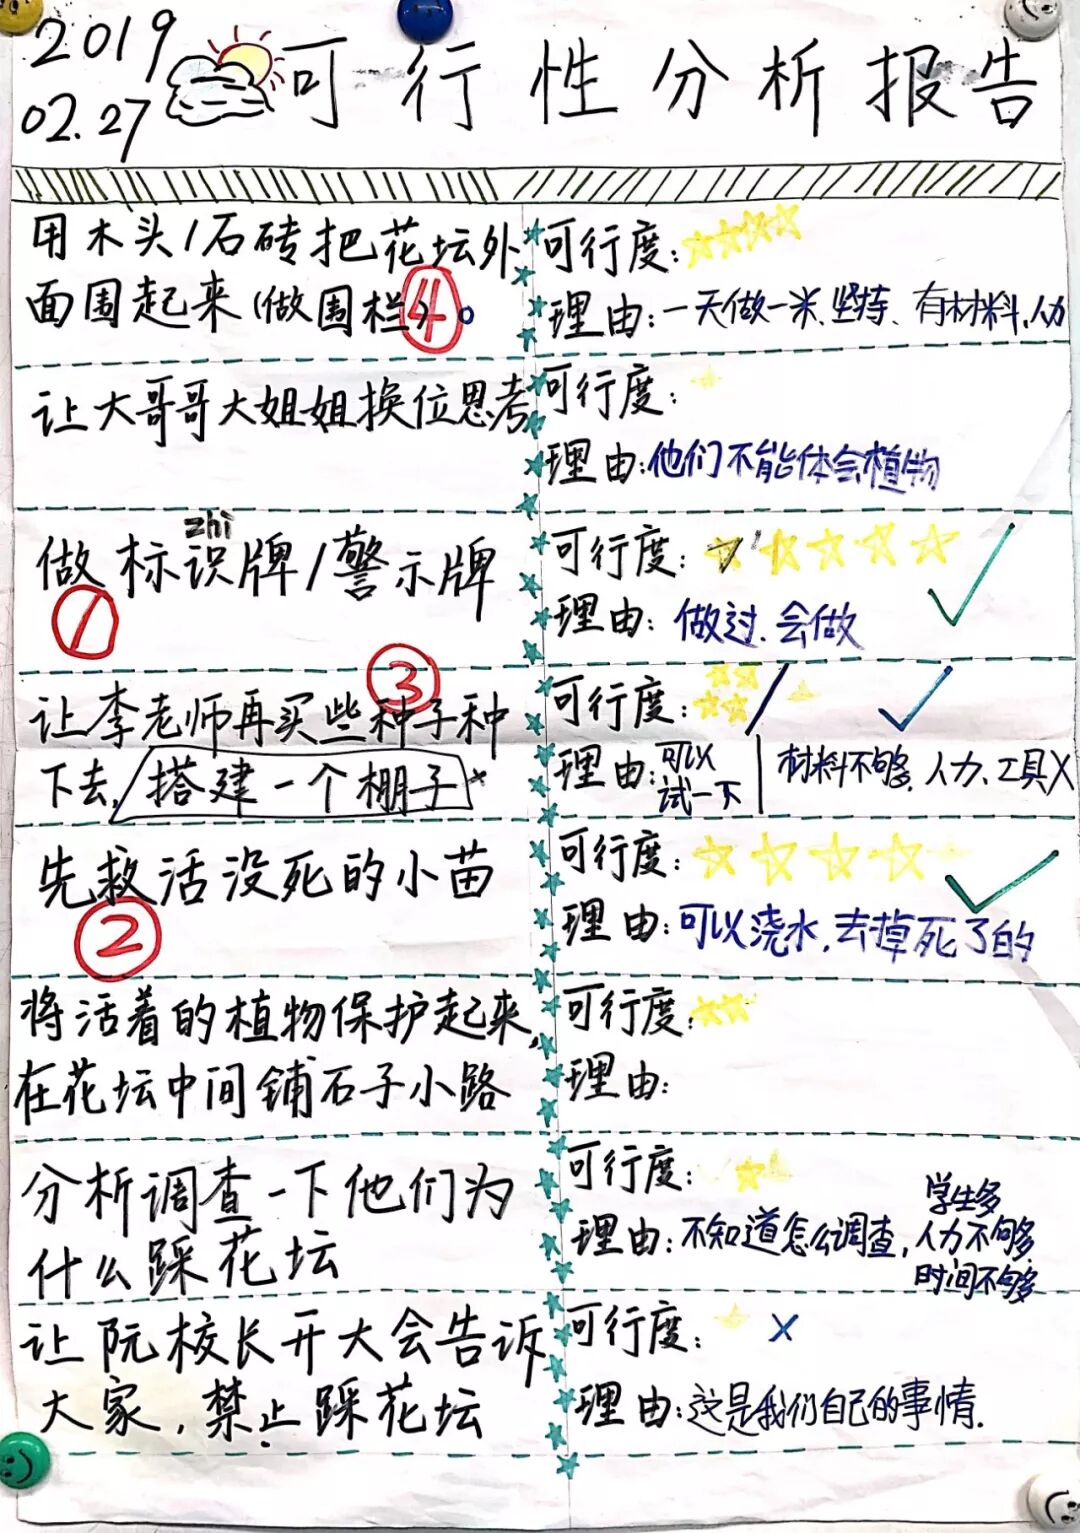 2019
02.27
可行性分析报告
用木头/石砖把花坛外
面围起来(做围栏)。
④
可行度:
理由:一天做一米、坚持、有材料、人力
让大哥哥大姐姐换位思考
可行度:
理由:他们不能体会植物
zhi
做标识牌/警示牌
①
可行度:
理由:做过、会做
③
让李老师再买些种子种
下去,/搭建一个棚子
可行度:
理由:可以
试一下
材料不够、人力、工具X
先救活没死的小苗
②
可行度:
理由:可以浇水,去掉死了的
将活着的植物保护起来,
在花坛中间铺石子小路
可行度:
理由:
分析调查一下他们为
什么踩花坛
可行度:
理由:不知道怎么调查,
学生多
人力不够
时间不够
让阮校长开大会告诉
大家,禁止踩花坛
可行度: X
理由:这是我们自己的事情.